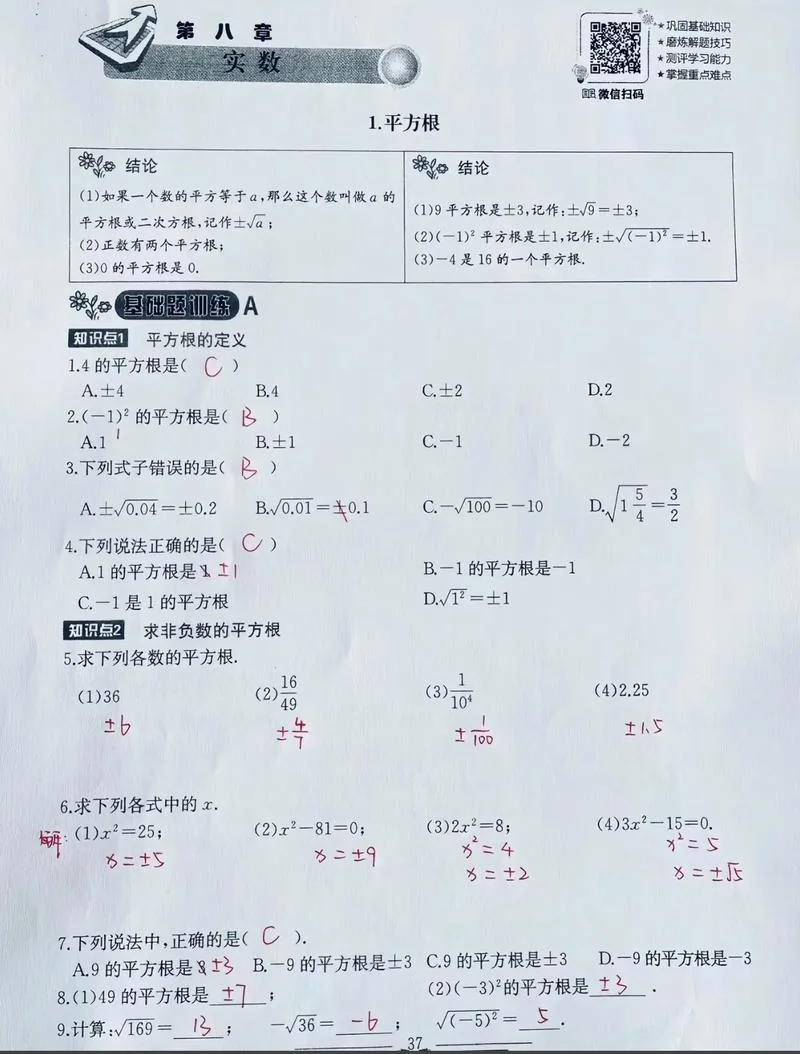 第 八 章
实 数
★巩固基础知识
★磨炼解题技巧
★测评学习能力
★掌握重点难点
微信扫码
1.平方根
结论
(1)如果一个数的平方等于a,那么这个数叫做a的
平方根或二次方根,记作±√a;
(2)正数有两个平方根;
(3)0的平方根是0.
结论
(1)9平方根是±3,记作:±√9=±3;
(2)(-1)²平方根是±1,记作:±√(-1)²=±1.
(3)-4是16的一个平方根.
基础题训练 A
知识点1 平方根的定义
1.4的平方根是( C )
A.±4 B.4 C.±2 D.2
2.(-1)²的平方根是( B )
A.1 B.±1 C.-1 D.-2
3.下列式子错误的是( B )
A.±√0.04=±0.2 B.√0.01=±0.1 C.-√100=-10 D.√(1 5/4)=3/2
4.下列说法正确的是( C )
A.1的平方根是1 ±1 B.-1的平方根是-1
C.-1是1的平方根 D.√1²=±1
知识点2 求非负数的平方根
5.求下列各数的平方根.
(1)36 (2)16/49 (3)1/10⁴ (4)2.25
±6 ±4/7 ±1/100 ±1.5
6.求下列各式中的x.
解: (1)x²=25; (2)x²-81=0; (3)2x²=8; (4)3x²-15=0.
x=±5 x=±9 x²=4 x²=5
x=±2 x=±√5
7.下列说法中,正确的是( C ).
A.9的平方根是3 ±3 B.-9的平方根是±3 C.9的平方根是±3 D.-9的平方根是-3
8.(1)49的平方根是 ±7 ; (2)(-3)²的平方根是 ±3 .
9.计算:√169= 13 ; -√36= -6 ; √(-5)²= 5 .
37